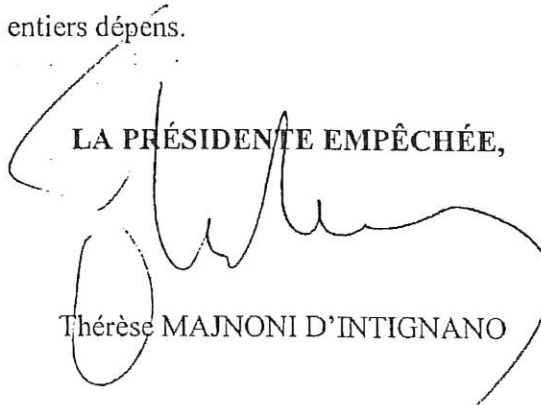 entiers dépens.
LA PRÉSIDENTE EMPÊCHÉE,
Thérèse MAJNONI D'INTIGNANO